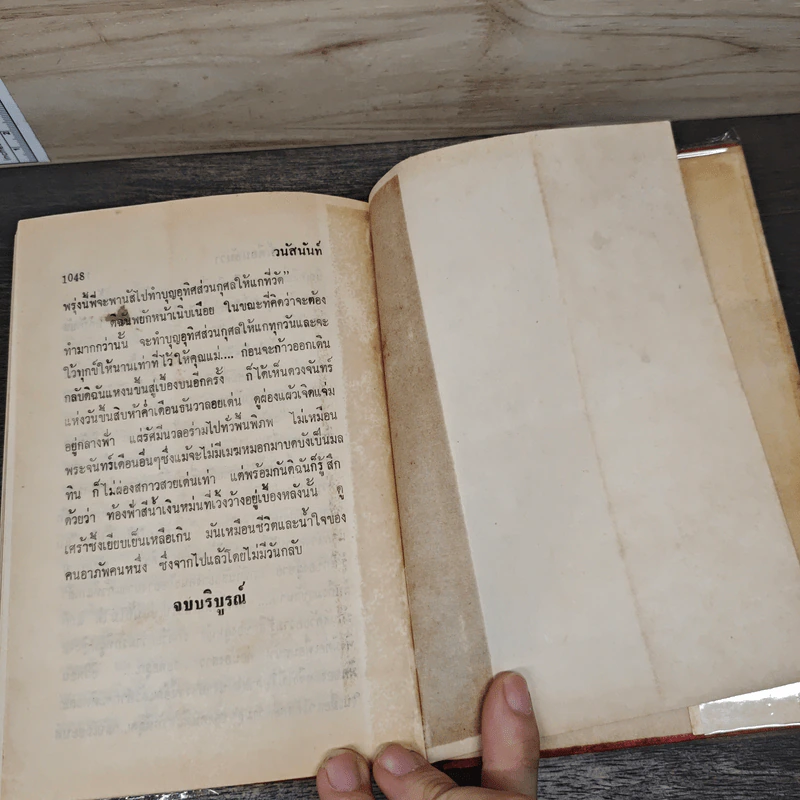 1048
วนัสนันท์
พรุ่งนี้พี่จะพานัสไปทำบุญอุทิศส่วนกุศลให้แกที่วัด"
ดิฉันพยักหน้าเนิบเนือย ในขณะที่คิดว่าจะต้อง
ทำมากกว่านั้น จะทำบุญอุทิศส่วนกุศลให้แกทุกวันและจะ
ไว้ทุกข์ให้นานเท่าที่ไว้ให้คุณแม่.... ก่อนจะก้าวออกเดิน
กลับดิฉันแหงนขึ้นสู่เบื้องบนอีกครั้ง ก็ได้เห็นดวงจันทร์
แห่งวันขึ้นสิบห้าค่ำเดือนธันวาลอยเด่น ดูผ่องแผ้วเจิดแจ่ม
อยู่กลางฟ้า แผ่รัศมีนวลอร่ามไปทั่วพื้นพิภพ ไม่เหมือน
พระจันทร์เดือนอื่นๆซึ่งแม้จะไม่มีเมฆหมอกมาบดบังเป็นมล
ทิน ก็ไม่ผ่องสกาวสวยเด่นเท่า แต่พร้อมกันดิฉันก็รู้สึก
ด้วยว่า ท้องฟ้าสีน้ำเงินหม่นที่เวิ้งว้างอยู่เบื้องหลังนั้น ดู
เศร้าซึ้งเยียบเย็นเหลือเกิน มันเหมือนชีวิตและน้ำใจของ
คนอาภัพคนหนึ่ง ซึ่งจากไปแล้วโดยไม่มีวันกลับ
จบบริบูรณ์